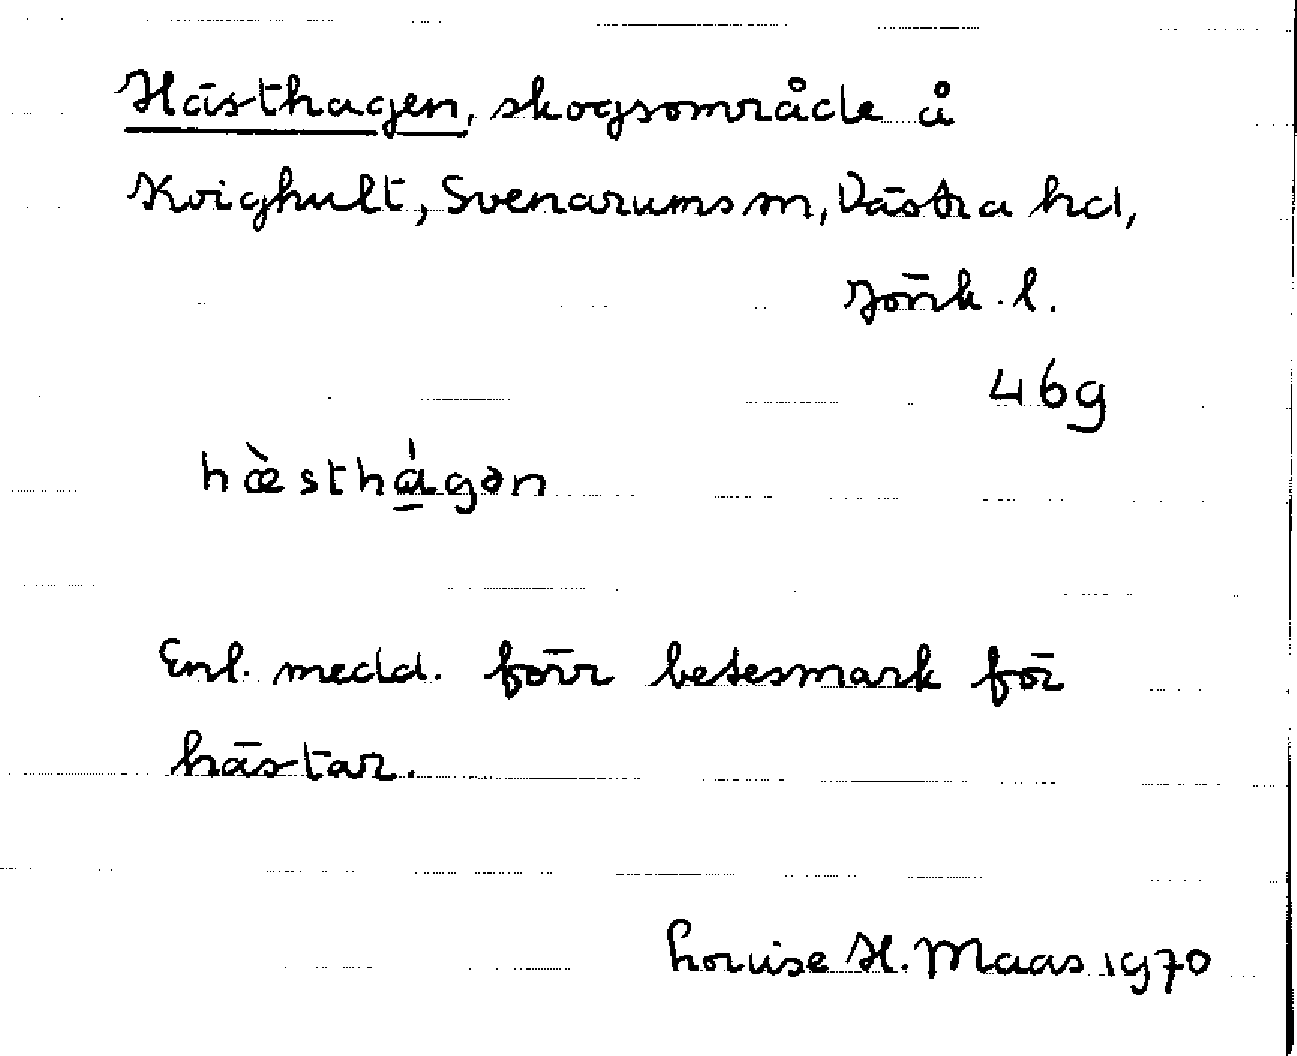 Hästhagen, skogsområde å
Kvighult, Svenarums sn, Västra hd,
Jönk. l.
46g
hὰ̀sthá̱gən
Enl. medd. förr betesmark för
hästar.
Louise H. Maas 1970